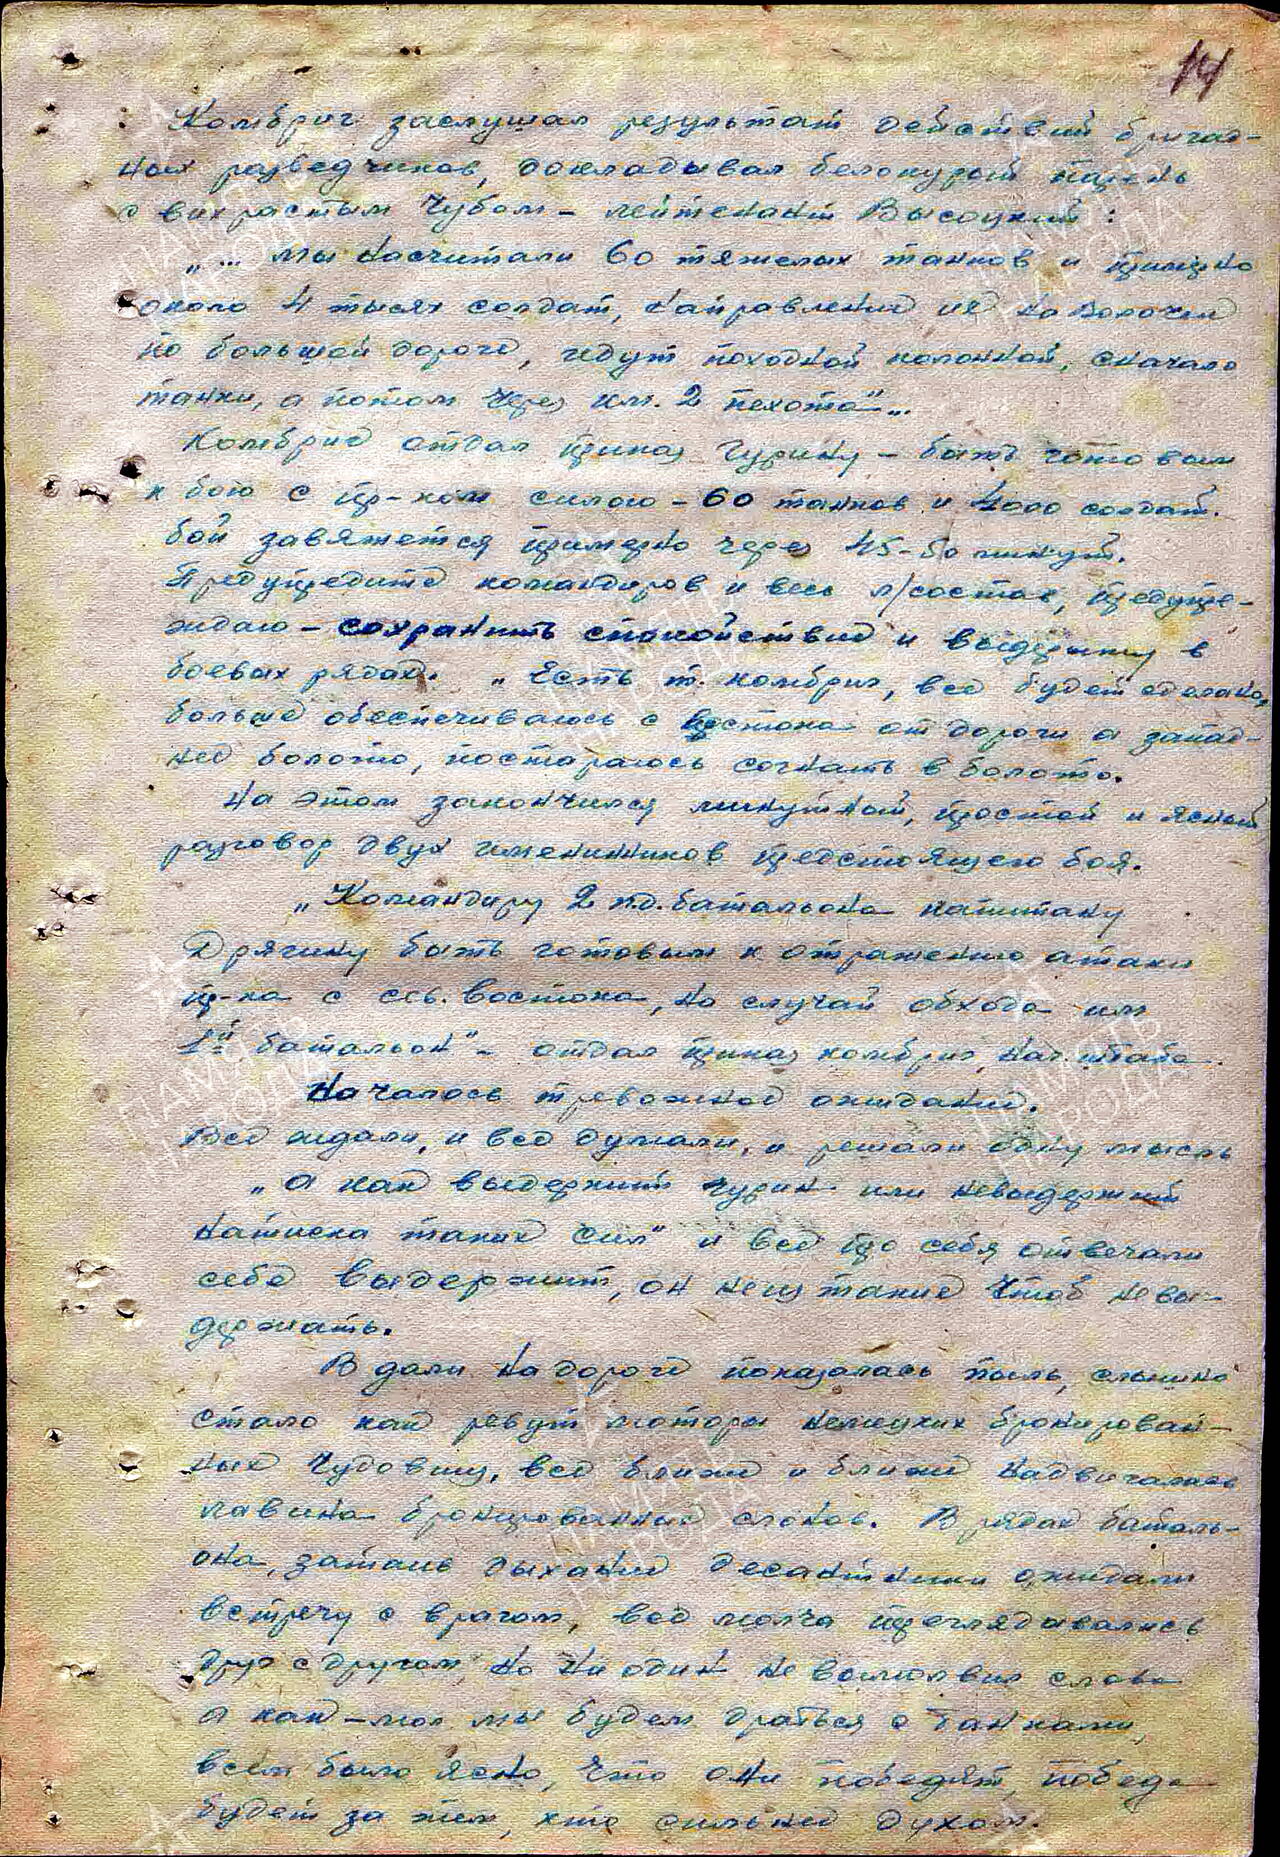 14
Комбриг заслушал результат действий бригад-
ных разведчиков, докладывал белокурый парень
с вихрастым чубом – лейтенант Высоцкий:
„... мы насчитали 60 тяжелых танков и примерно
около 4 тысяч солдат, направление их на
по большой дороге, идут походной колонной, сначало
танки, а потом через км. 2 пехота"...
Комбриг отдал приказ Чурину – быть готовым
к бою с пр-ком силою – 60 танков и 4000 солдат.
бой завяжется примерно через 45-50 минут.
Предупредите командиров и весь л/состав, предупре-
ждаю – сохранить спокойствие и выдержку в
боевых рядах. „Есть т. комбриг, все будет сделано,
больше обеспечиваюсь с востока от дороги а запад-
нее болото, постараюсь согнать в болото.
На этом закончился минутный, простой и ясный
разговор двух именинников предстоящего боя.
„Командиру 2 п.д. батальона капитану
Дрягину быть готовым к отражению атаки
пр-ка с сев. востока, на случай обхода им
1й батальон" – отдал приказ комбриг нач. штаба
Началось тревожное ожидание.
Все ждали, и все думали, и решали одну мысль
„а как выдержит Чурин или невыдержит
натиска таких сил" и все про себя отвечали
себе выдержит, он не из таких чтоб невы-
держать.
В дали на дороге показалась пыль, слышно
стало как ревут моторы немецких бронирован-
ных чудовищ, все ближе и ближе надвигалась
лавина бронированных слонов. В рядах баталь-
она, затаив дыхание десантники ожидали
встречу с врагом, все молча преглядывались
друг с другом но ни один не вымолвил слова
а как – мол мы будем драться с танками,
всем было ясно, что они победят, победа
будет за тем, кто сильнее духом.
ПАМЯТЬ НАРОДА